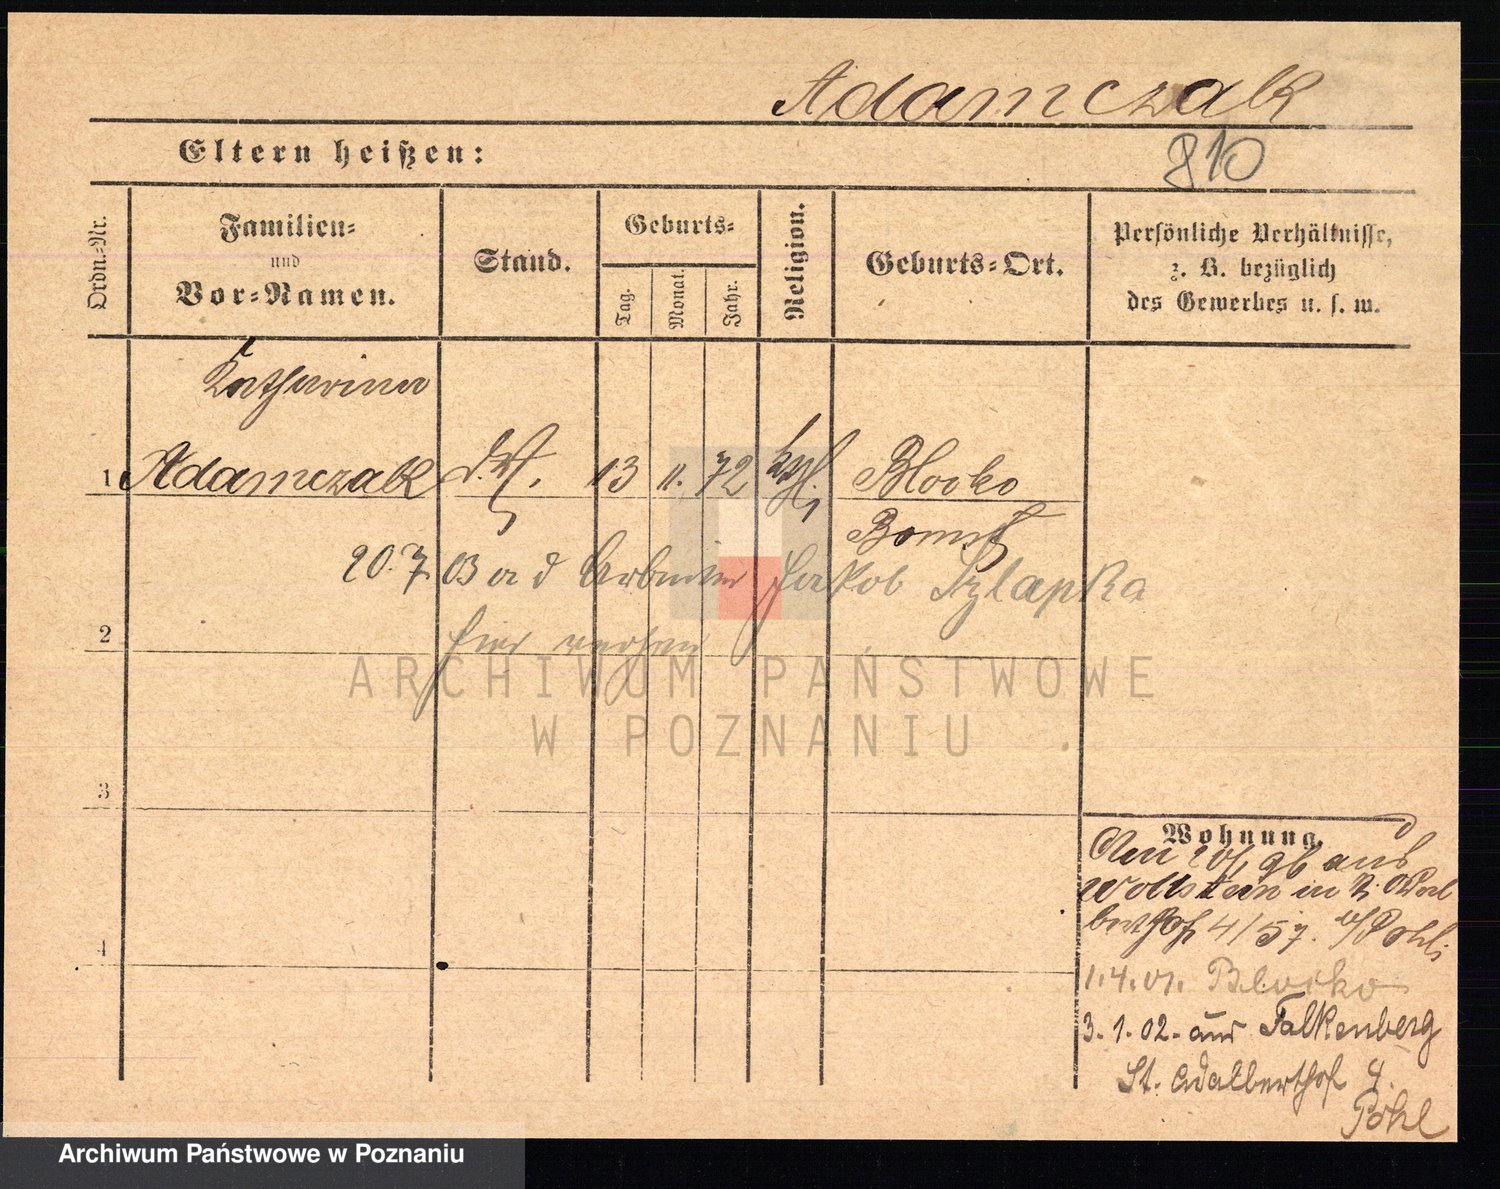 Adamczak
810
Eltern heißen:
Ordn.-Nr.
Familien-
und
Vor-Namen.
Stand.
Geburts-
Tag.
Monat.
Jahr.
Religion.
Geburts-Ort.
Persönliche Verhältnisse,
z. B. bezüglich
des Gewerbes u. s. w.
Katharina
1 Adamczak 13 11. 72 kath. Blocko
Bomst
20. 7. 03 a d Arbeiter Jakob Szlapka
2 hier
ARCHIWUM PAŃSTWOWE
W POZNANIU
3
Wohnung.
Am 20/1 96 aus
Wollstein in
4/57. Pohl
4
1.4.01. Blocko
3. 1. 02. aus Falkenberg
St. Adalberthof 4.
Pohl
Archiwum Państwowe w Poznaniu